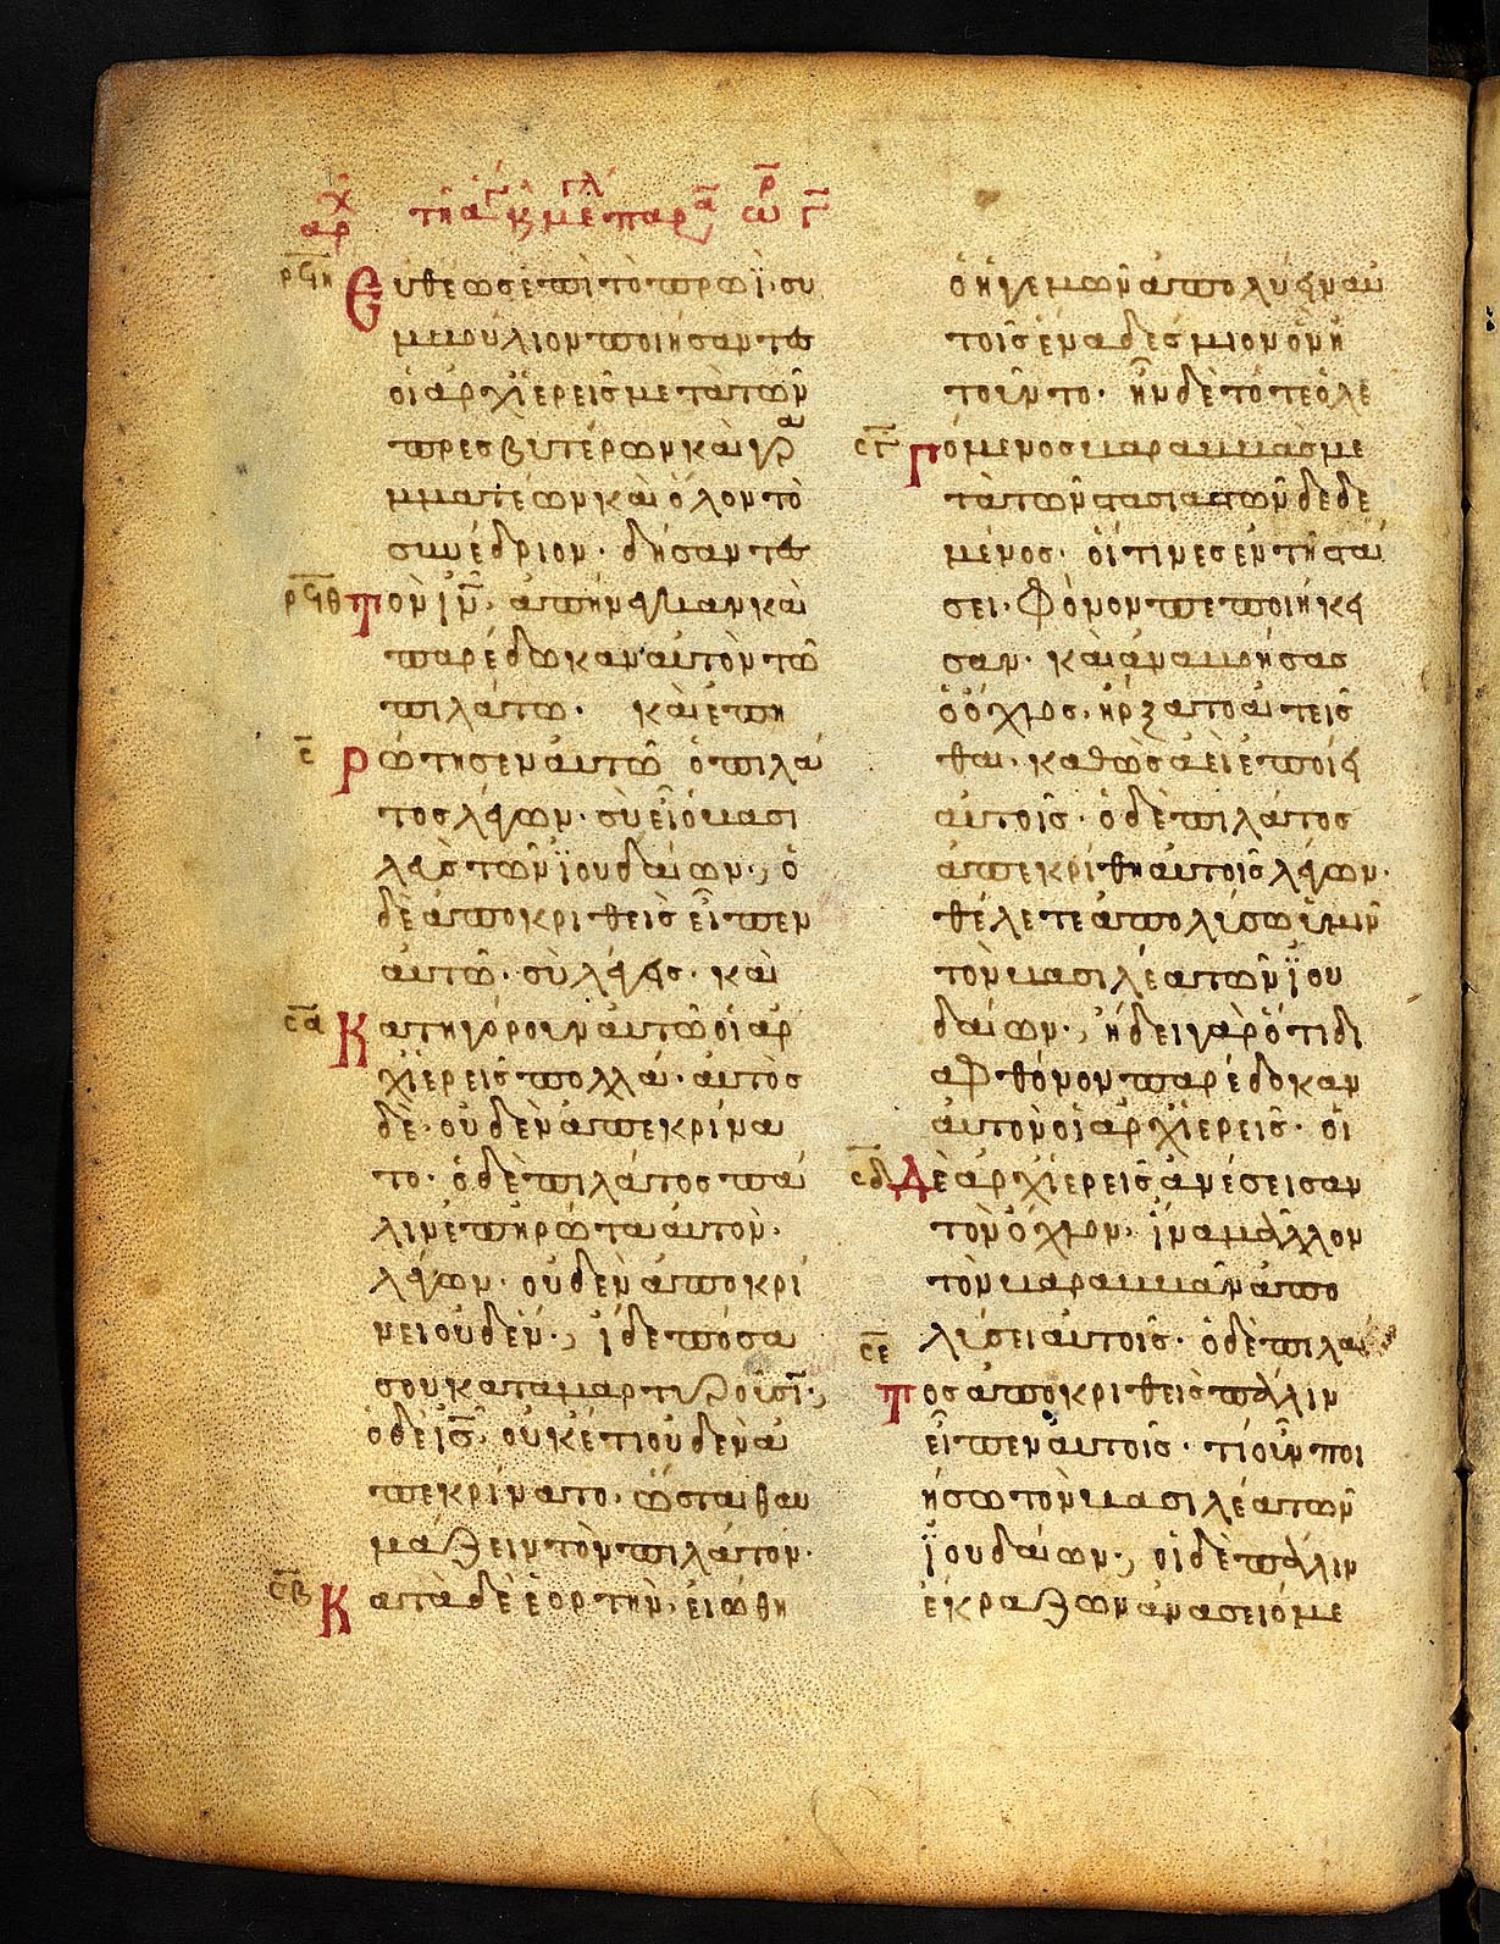 ρϟη Εὐθέωσ ἐπὶ τὸ πρωῒ· συ
μβούλιον ποιήσαντες
οἱ ἀρχϊερεῖσ μετὰ τῶν
πρεσβυτέρων καὶ γρα
μματέων καὶ ὅλον τὸ
συνέδριον· δήσαντες
ρϟθ Τὸν ἰν̄, ἀπήνεγκαν καὶ
παρέδωκαν αὐτὸν τῶ
πιλάτω· καὶ ἐπη
σ̄ Ρώτησεν αὐτῶ ὁ πιλά
τοσ λέγων· σὺ εἶ ὁ βασι
λεὺσ τῶν ϊουδαίων·, ὁ
δὲ ἀποκριθεὶσ εἶπεν
αὐτῶ· σὺ λέγεισ· καὶ
σ̄ᾱ Κατηγόρουν αὐτῶ οἱ ἀρ
χϊερεῖσ πολλά· αὐτὸσ
δὲ· οὐδὲν ἀπεκρίνα
το· ὁ δὲ πιλάτοσ πά
λιν ἐπηρώτα αὐτὸν·
λέγων· οὐδὲν ἀποκρί
νει οὐδέν·, ἴδε πόσα
σου καταμαρτυροῦσῑ·,
ὁ δὲ ἰσ̄· οὐκέτι οὐδὲν ἀ
πεκρίνατο· ὥσται θαυ
μάζειν τὸν πιλάτον·
σ̄β̄ Κατὰ δὲ ἑορτὴν· εἰώθη
ὁ ἡγεμὼν ἀπολύειν αὐ
τοῖσ ἕνα δέσμιον ὃν ἠ
τοῦντο· ἦν δὲ τότε ὁ λε
σ̄γ̄ Γόμενοσ βαραββᾶσ με
τὰ τῶν στασιαστῶν δεδε
μένοσ· οἵτινεσ ἐν τῆ στά
σει· Φόνον πεποιήκει
σαν· καὶ ἀναβοήσασ
ὁ ὄχλοσ, ἤρξατο αἰτεῖσ
θαι· καθὼσ ἀεὶ ἐποίει
αὐτοῖσ· ὁ δὲ πιλάτοσ
ἀπεκρίθη αὐτοῖσ λέγων·
θέλετε ἀπολύσω ὑμῖν
τὸν βασιλέα τῶν ϊου
δαίων·, ἤδει γὰρ ὅτι δι
α Φθόνον παρέδοκαν
αὐτὸν οἱ ἀρχϊερεῖσ· οἱ
σ̄δ̄ Δὲ ἀρχϊερεῖσ ἀνέσεισαν
τὸν ὄχλον· ἵνα μᾶλλον
τὸν βαραββᾶν ἀπο
λύσει αὐτοῖσ· ὁ δὲ πιλά
σ̄ε̄ Τοσ ἀποκριθεὶσ πάλιν
εἶπεν αὐτοῖσ· τί οὖν ποι
ήσω τὸν βασιλέα τῶν
ϊουδαίων·, οἱ δὲ πάλιν
ἔκραζων ἀνασειόμε